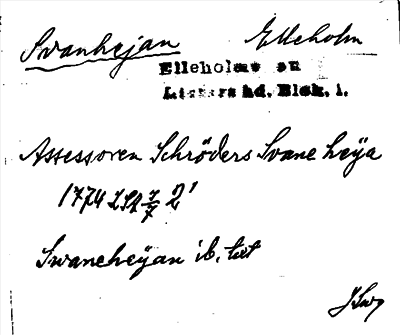 Svanhejan Elleholm
Elleholms sn
Listers hd. Blek. l.
Assessoren Schröders Svane heÿa
1774 LSA 7/7 2'
Swaneheÿan ib. txt